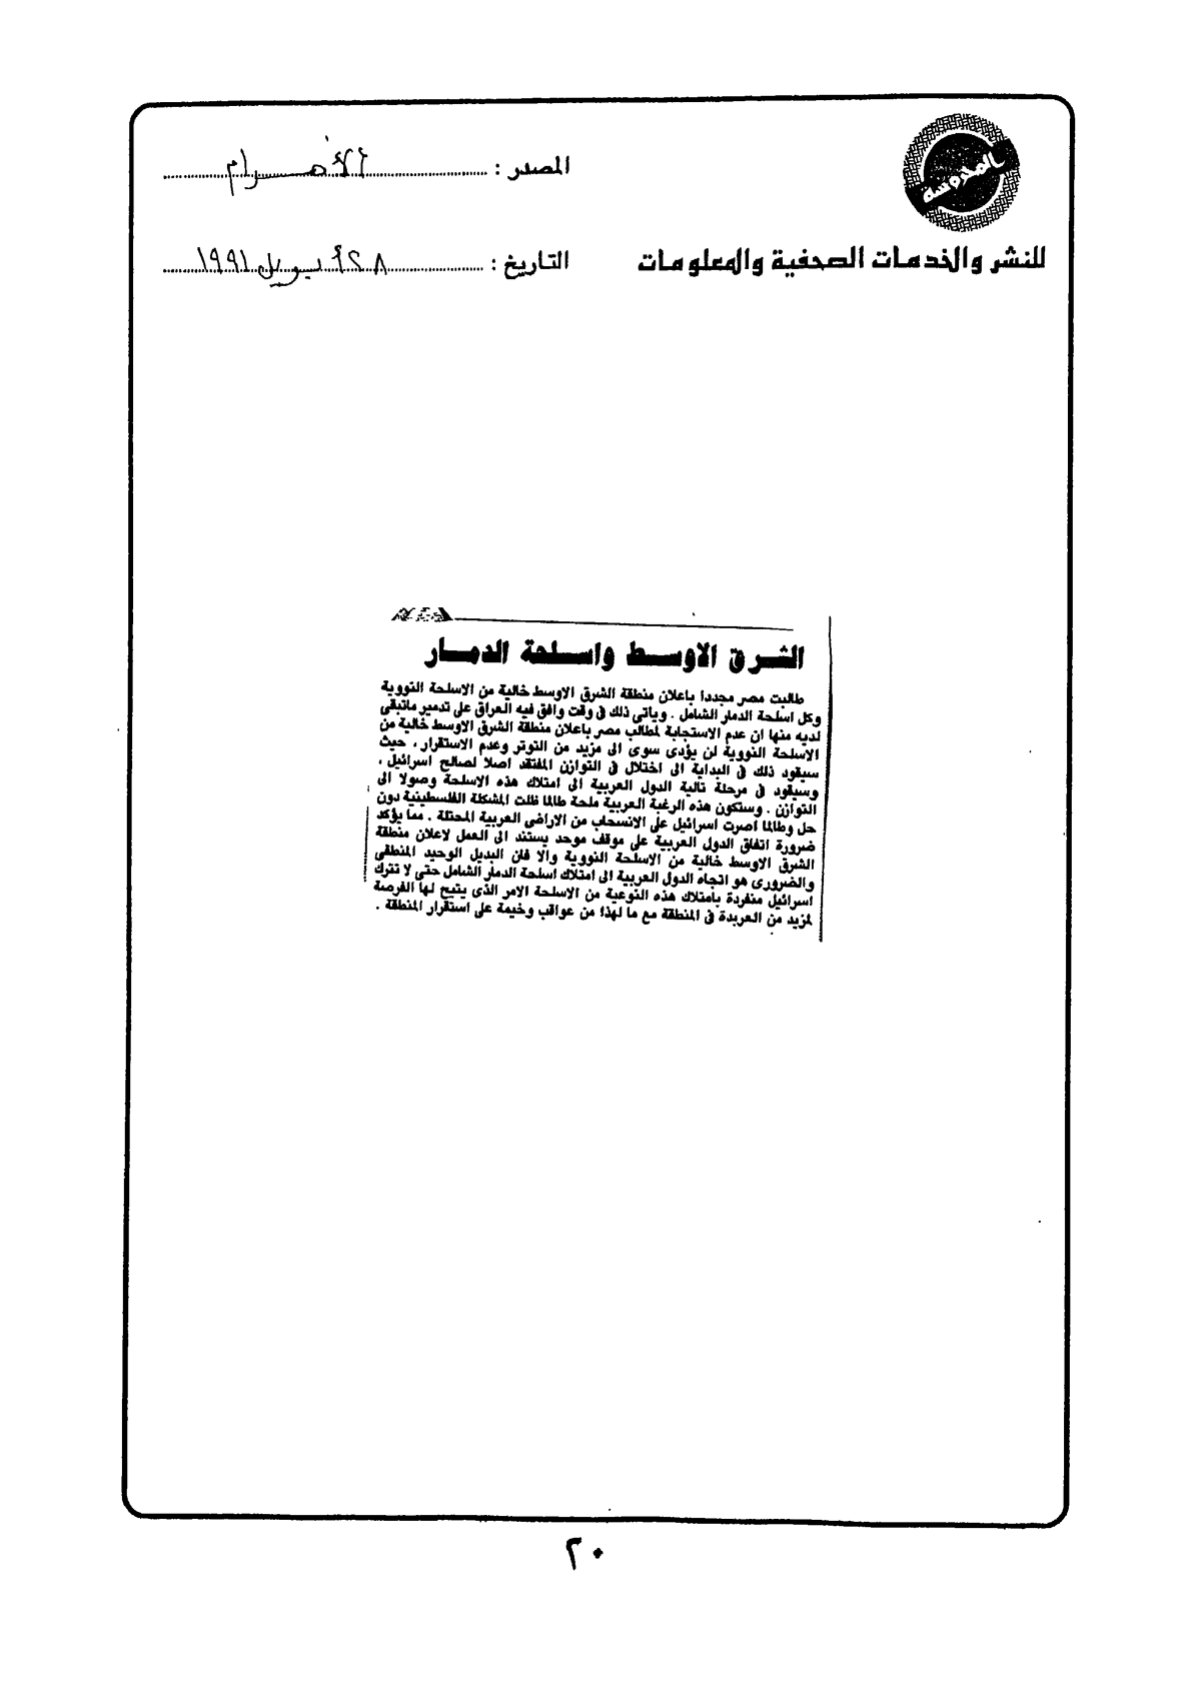 المصدر : الأهرام
للنشر والخدمات الصحفية والمعلومات
التاريخ : ٢٨ ١٩٩١
الشرق الاوسط واسلحة الدمار
طالبت مصر مجددا باعلان منطقة الشرق الاوسط خالية من الاسلحة النووية
وكل اسلحة الدمار الشامل . وياتى ذلك فى وقت وافق فيه العراق على تدمير ماتبقى
لديه منها ان عدم الاستجابة لمطالب مصر باعلان منطقة الشرق الاوسط خالية من
الاسلحة النووية لن يؤدى سوى الى مزيد من التوتر وعدم الاستقرار ، حيث
سيقود ذلك فى البداية الى اختلال فى التوازن المفتقد اصلا لصالح اسرائيل ،
وسيقود فى مرحلة تالية الدول العربية الى امتلاك هذه الاسلحة وصولا الى
التوازن . وستكون هذه الرغبة العربية ملحة طالما ظلت المشكلة الفلسطينية دون
حل وطالما اصرت اسرائيل على الانسحاب من الاراضى العربية المحتلة . مما يؤكد
ضرورة اتفاق الدول العربية على موقف موحد يستند الى العمل لاعلان منطقة
الشرق الاوسط خالية من الاسلحة النووية والا فان البديل الوحيد المنطقى
والضرورى هو اتجاه الدول العربية الى امتلاك اسلحة الدمار الشامل حتى لا تترك
اسرائيل منفردة بامتلاك هذه النوعية من الاسلحة الامر الذى يتيح لها الفرصة
لمزيد من العربدة فى المنطقة مع ما لهذا من عواقب وخيمة على استقرار المنطقة .
٢٠